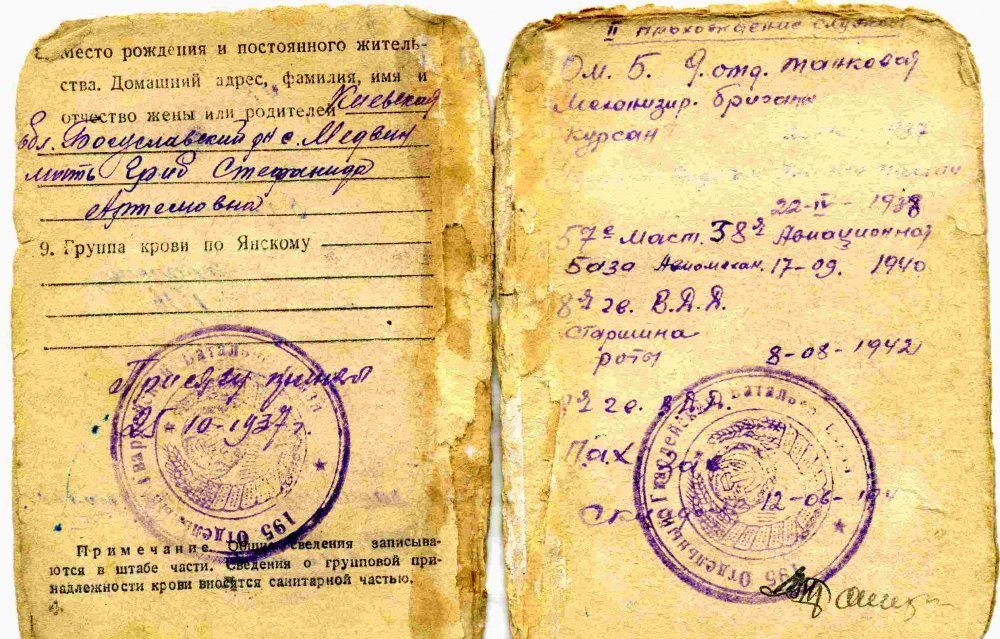 8. Место рождения и постоянного житель-
ства. Домашний адрес, фамилия, имя и
отчество жены или родителей Киевская
обл. Богуславский рн с. Медвин
мать Гриб Стефанида
Артемовна
9. Группа крови по Янскому
Присягу принял
25 10-1937 г.
195 Отдельный Гвардейский Батальон
Примечание. Общие сведения записыва-
ются в штабе части. Сведения о групповой при-
надлежности крови вносятся санитарной частью.
II Прохождение службы
От. Б. 9 отд. танковой
Механизир. Бригады
Курсант 1937
22-IV-1938
57е маст. 38й Авиационной
База Авиомехан. 17-09. 1940
8й гв. В.Д.Д.
Старшина
роты 8-08-1942
гв. В.Д.Д.
12-06-194
195 Отдельный Гвардейский Батальон